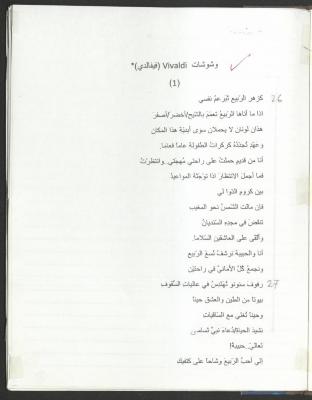 وشوشات Vivaldi (فيفالدي)*
(1)
26 كزهر الرّبيع تبرعمُ نفسي
اذا ما أتاها الرّبيعُ تعمّم بالتّلجِ/أخضر/أصفر
هذان لونان لا يحملان سوى أبديّة هذا المكان
وعهدٍ تُجدّدهُ كركراتُ الطّفولة عاماً فعاما.
أنا من قديمٍ حملتُ على راحتي مُهجتي..وانتظرتُ
فما أجمل الانتظارَ اذا توّجتْهُ المواعيدُ.
بين كروم الدّوالي
فإن مالت الشّمسُ نحو المغيب
تنقضُ في مجدِهِ السنديانُ
وألقى على العاشقين السّلاما.
أنا والحبيبة نرشفُ نسغ الرّبيع
ونجمعُ كلّ الأمانيّ في راحتيْن
27 رفوف سنونو تُهندسُ في عاليات السّقوف
بيوتاً من الطين والعشق حيناً
وحيناً تُغنّي مع السّاقيات
نشيدَ الحياة/دُعاءَ نبيٍّ تسامى
تعاليْ..حبيبة!
إلى أحبُّ الرّبيعَ وشاحاً على كتفيك